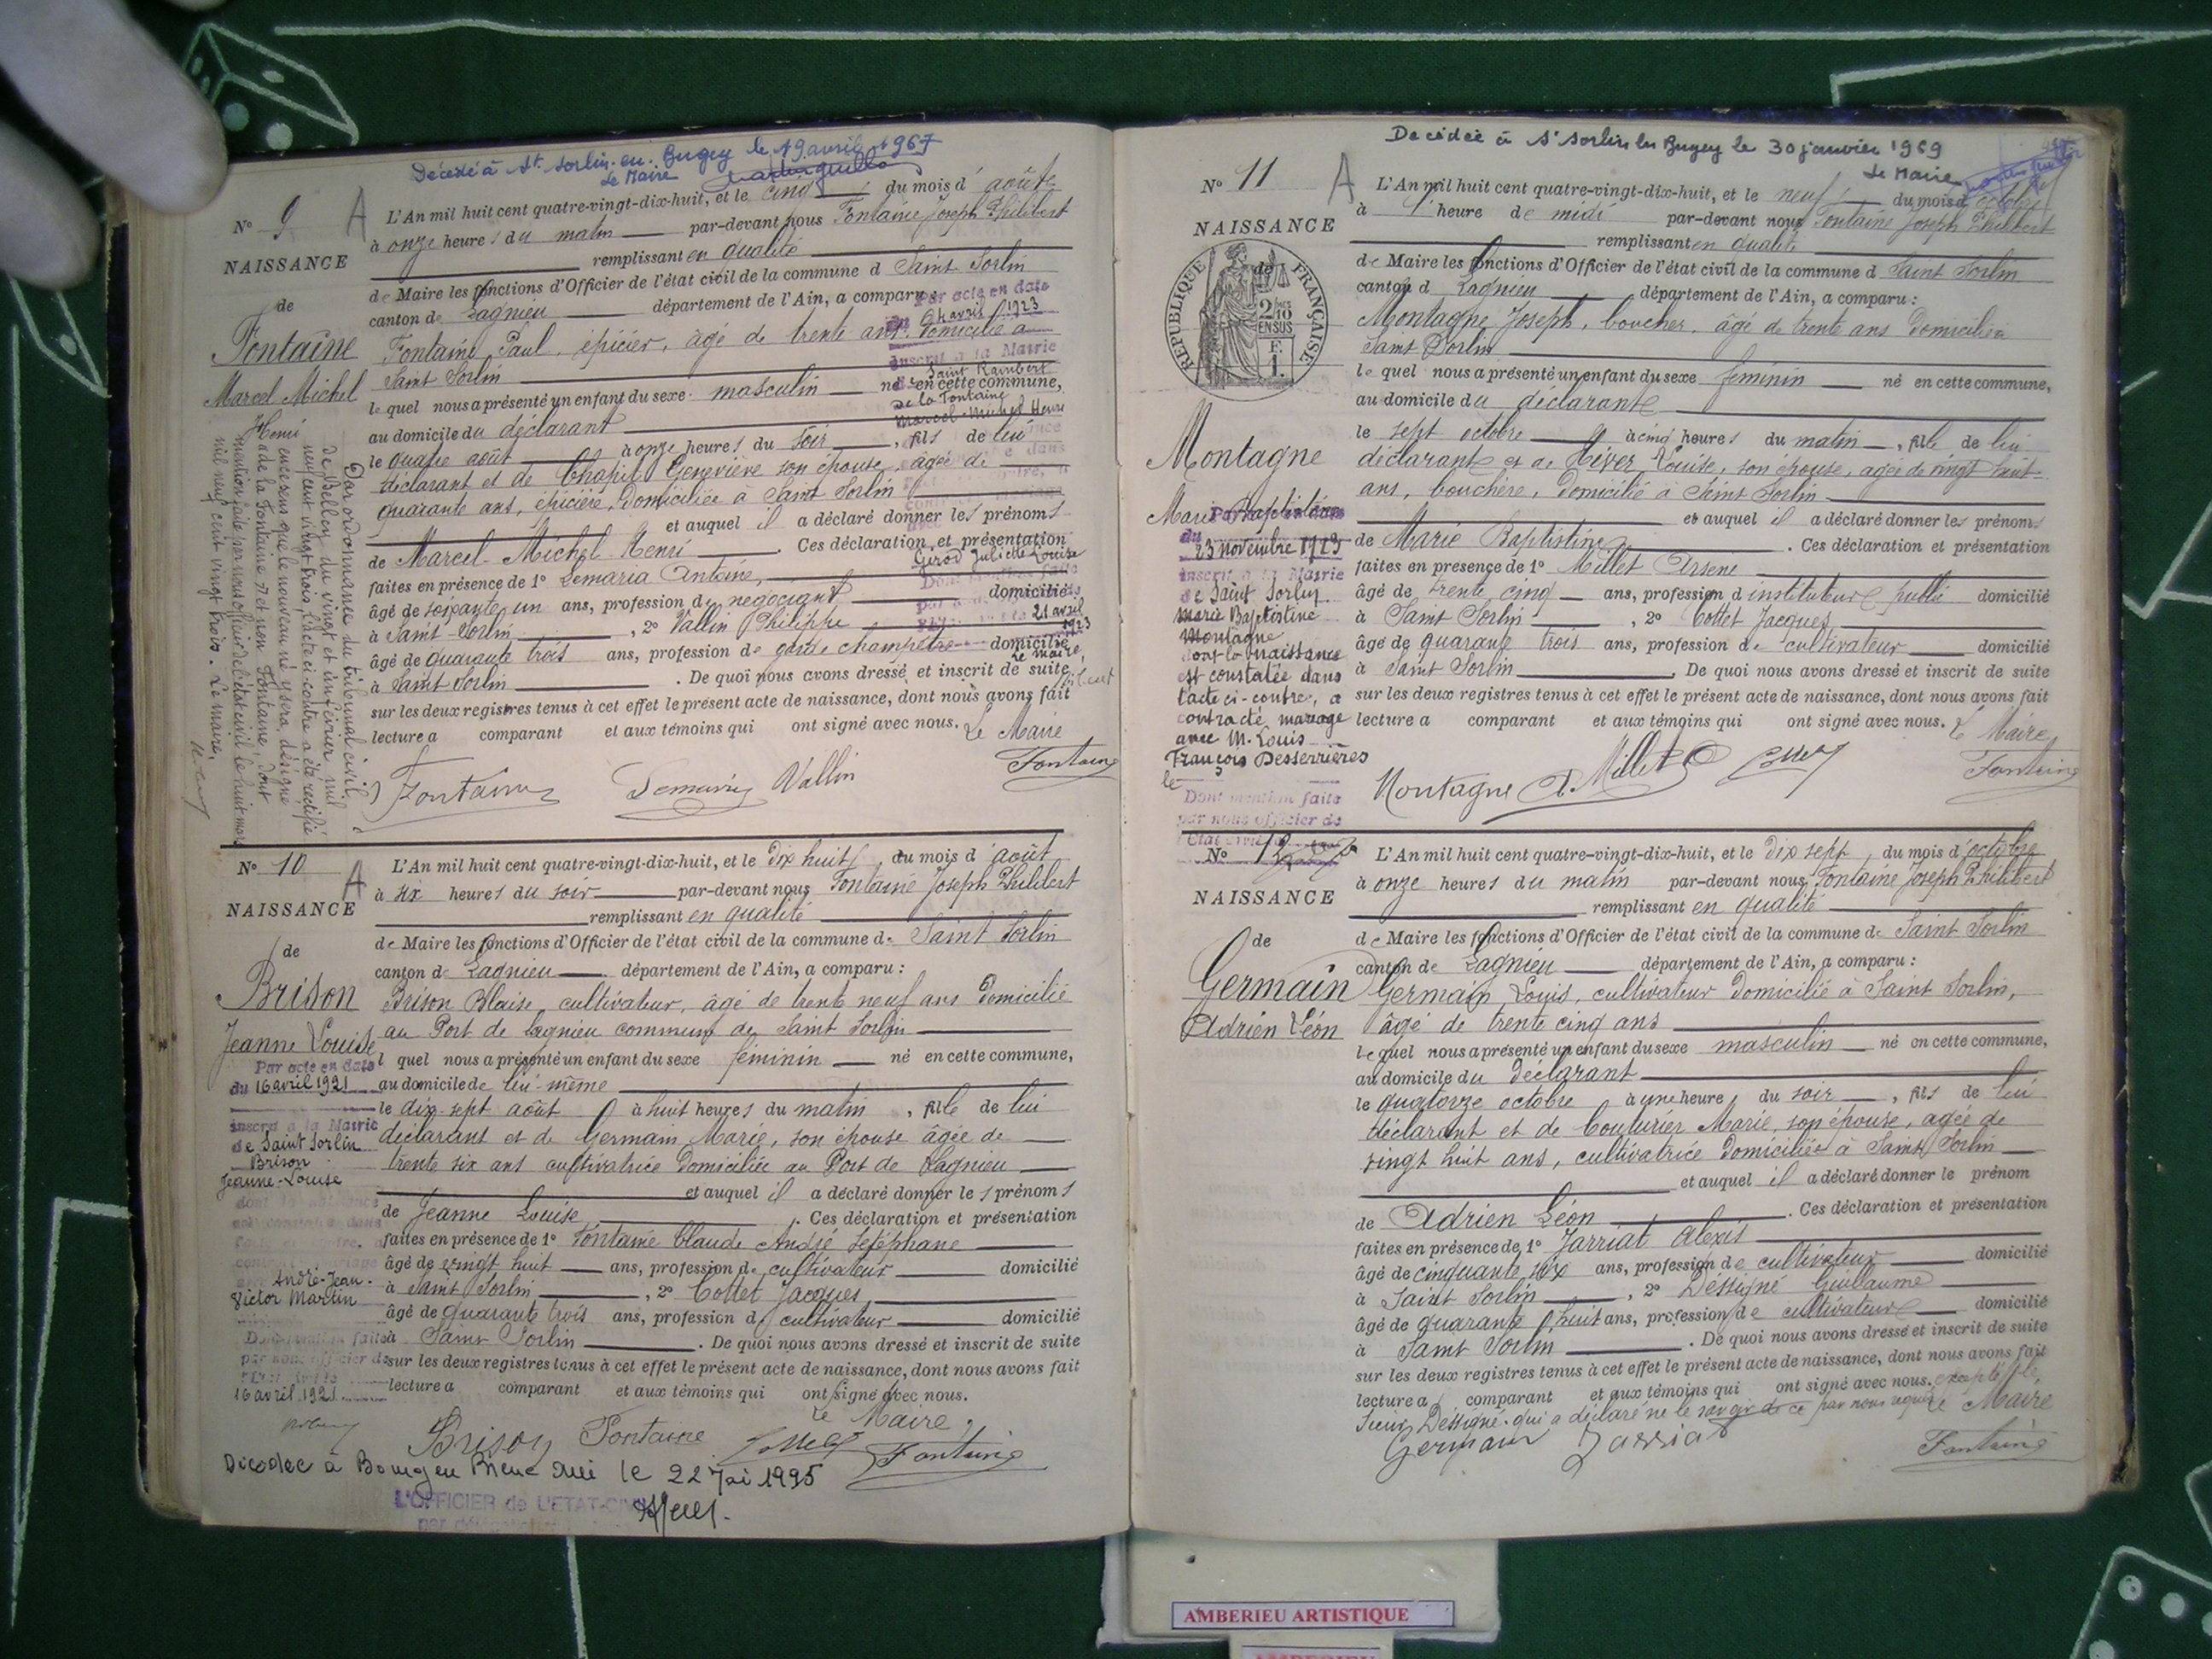 Décédé à St. Sorlin-en-Bugey le 19 avril 1967
Le Maire
N° 9
A
L'An mil huit cent quatre-vingt-dix-huit, et le cinq du mois d'août
à onze heures du matin par-devant nous Fontaine Joseph Philibert
NAISSANCE
remplissant en qualité
de Maire les fonctions d'Officier de l'état civil de la commune d Saint Sorlin
de
canton de Lagnieu département de l'Ain, a comparu
Par acte en date
du 21 avril 1923
Fontaine
Fontaine Paul, épicier, âgé de trente ans domicilié à
inscrit à la Mairie
Marcel Michel
Henri
Saint Sorlin
Saint Rambert
le quel nous a présenté un enfant du sexe masculin né en cette commune,
de la Fontaine
Marcel Michel Henri
au domicile du déclarant
le quatre août à onze heures du soir, fils de lui
déclarant et de Chapil Geneviève son épouse, âgée de
quarante ans, épicière, domiciliée à Saint Sorlin
et auquel il a déclaré donner les prénoms
de Marcel Michel Henri. Ces déclaration et présentation
Girod Juliette Louise
faites en présence de 1° Demaria Antoine,
Dont mention faite
âgé de soixante un ans, profession de négociant domicilié
à Saint Sorlin, 2° Vallin Philippe
21 avril
1923
âgé de quarante trois ans, profession de garde champêtre domicilié
Le Maire,
à Saint Sorlin. De quoi nous avons dressé et inscrit de suite
sur les deux registres tenus à cet effet le présent acte de naissance, dont nous avons fait
lecture a comparant et aux témoins qui ont signé avec nous. Le Maire
Fontaine Demaria Vallin Fontaine
Par ordonnance du tribunal civil
de Belley du vingt et un février mil
neuf cent vingt trois, l'acte ci-contre a été rectifié
en ce sens que le nouveau né y sera désigné
« de la Fontaine » et non Fontaine, dont
mention faite par nous officier de l'état civil le huit mars
mil neuf cent vingt trois. Le maire,
N° 10
A
L'An mil huit cent quatre-vingt-dix-huit, et le dix huit du mois d'août
à six heures du soir par-devant nous Fontaine Joseph Philibert
NAISSANCE
remplissant en qualité
de Maire les fonctions d'Officier de l'état civil de la commune de Saint Sorlin
de
canton de Lagnieu département de l'Ain, a comparu :
Brison
Brison Blaise, cultivateur, âgé de trente neuf ans domicilié
Jeanne Louise
au Port de Lagnieu commune de Saint Sorlin
l quel nous a présenté un enfant du sexe féminin né en cette commune,
Par acte en date
du 16 avril 1921
au domicile de lui-même
le dix-sept août à huit heures du matin, fille de lui
inscrit à la Mairie
de Saint Sorlin
Brison
Jeanne-Louise
déclarant et de Germain Marie, son épouse âgée de
trente six ans cultivatrice domiciliée au Port de Lagnieu
et auquel il a déclaré donner les prénoms
de Jeanne Louise. Ces déclaration et présentation
faites en présence de 1° Fontaine Claude André Stéphane
âgé de vingt huit ans, profession de cultivateur domicilié
André-Jean-
Victor Martin
à Saint Sorlin, 2° Cottet Jacques
âgé de quarante trois ans, profession de cultivateur domicilié
Dont mention faite
par nous officier de
l'Etat civil le
16 avril 1921
à Saint Sorlin. De quoi nous avons dressé et inscrit de suite
sur les deux registres tenus à cet effet le présent acte de naissance, dont nous avons fait
lecture a comparant et aux témoins qui ont signé avec nous.
Le Maire,
Brison Fontaine Cottet Fontaine
Décédée à Bourg en Bresse le 22 Mai 1995
L'OFFICIER de L'ETAT-CIVIL
par délégation
Décédée à St Sorlin en Bugey le 30 janvier 1969
Le Maire
N° 11
A
L'An mil huit cent quatre-vingt-dix-huit, et le neuf du mois d'octobre
à l'heure de midi par-devant nous Fontaine Joseph Philibert
NAISSANCE
remplissant en qualité
de
de Maire les fonctions d'Officier de l'état civil de la commune d Saint Sorlin
canton d Lagnieu département de l'Ain, a comparu :
REPUBLIQUE FRANÇAISE
2/10 EN SUS
F. 1.
Montagne Joseph, boucher, âgé de trente ans domicilié à
Saint Sorlin
le quel nous a présenté un enfant du sexe féminin né en cette commune,
au domicile du déclarant
le sept octobre à cinq heures du matin, fille de lui
Montagne
Marie Baptistine
déclarant et de Hiver Louise, son épouse, âgée de vingt huit
ans, bouchère, domicilié à Saint Sorlin
et auquel il a déclaré donner les prénoms
Par acte en date
du
23 novembre 1923
inscrit à la Mairie
de Saint Sorlin
Marie Baptistine
Montagne
dont la naissance
est constatée dans
l'acte ci-contre, a
contracté mariage
avec M. Louis
François Desserrières
le
Dont mention faite
par nous officier de
l'Etat civil
de Marie Baptistine. Ces déclaration et présentation
faites en présence de 1° Millet Arsène
âgé de trente cinq ans, profession d instituteur public domicilié
à Saint Sorlin, 2° Cottet Jacques
âgé de quarante trois ans, profession de cultivateur domicilié
à Saint Sorlin. De quoi nous avons dressé et inscrit de suite
sur les deux registres tenus à cet effet le présent acte de naissance, dont nous avons fait
lecture a comparant et aux témoins qui ont signé avec nous. Le Maire,
Montagne A. Millet Cottet Fontaine
N° 12
L'An mil huit cent quatre-vingt-dix-huit, et le dix sept, du mois d'octobre
à onze heures du matin par-devant nous Fontaine Joseph Philibert
NAISSANCE
remplissant en qualité
de
de Maire les fonctions d'Officier de l'état civil de la commune de Saint Sorlin
canton de Lagnieu département de l'Ain, a comparu :
Germain
Adrien Léon
Germain Louis, cultivateur domicilié à Saint Sorlin,
âgé de trente cinq ans
le quel nous a présenté un enfant du sexe masculin né en cette commune,
au domicile du déclarant
le quatorze octobre à une heure du soir, fils de lui
déclarant et de Couturier Marie, son épouse, âgée de
vingt huit ans, cultivatrice domiciliée à Saint Sorlin
et auquel il a déclaré donner le prénom
de Adrien Léon. Ces déclaration et présentation
faites en présence de 1° Jarriat Alexis
âgé de cinquante six ans, profession de cultivateur domicilié
à Saint Sorlin, 2° Dessigné Guillaume
âgé de quarante huit ans, profession de cultivateur domicilié
à Saint Sorlin. De quoi nous avons dressé et inscrit de suite
sur les deux registres tenus à cet effet le présent acte de naissance, dont nous avons fait
lecture a comparant et aux témoins qui ont signé avec nous. excepté le
sieur Dessigné qui a déclaré ne le savoir de ce par nous requis Le Maire
Germain Jarriat Fontaine
AMBERIEU ARTISTIQUE
AMBERIEU